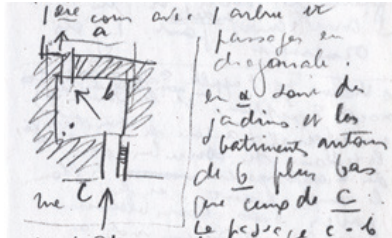 1ère cour avec 1 arbre et
passages en
diagonale.
en a sont des
jardins et les
bâtiments autour
de b plus bas
que ceux de c.
Le passage c-b
a
b
c
rue